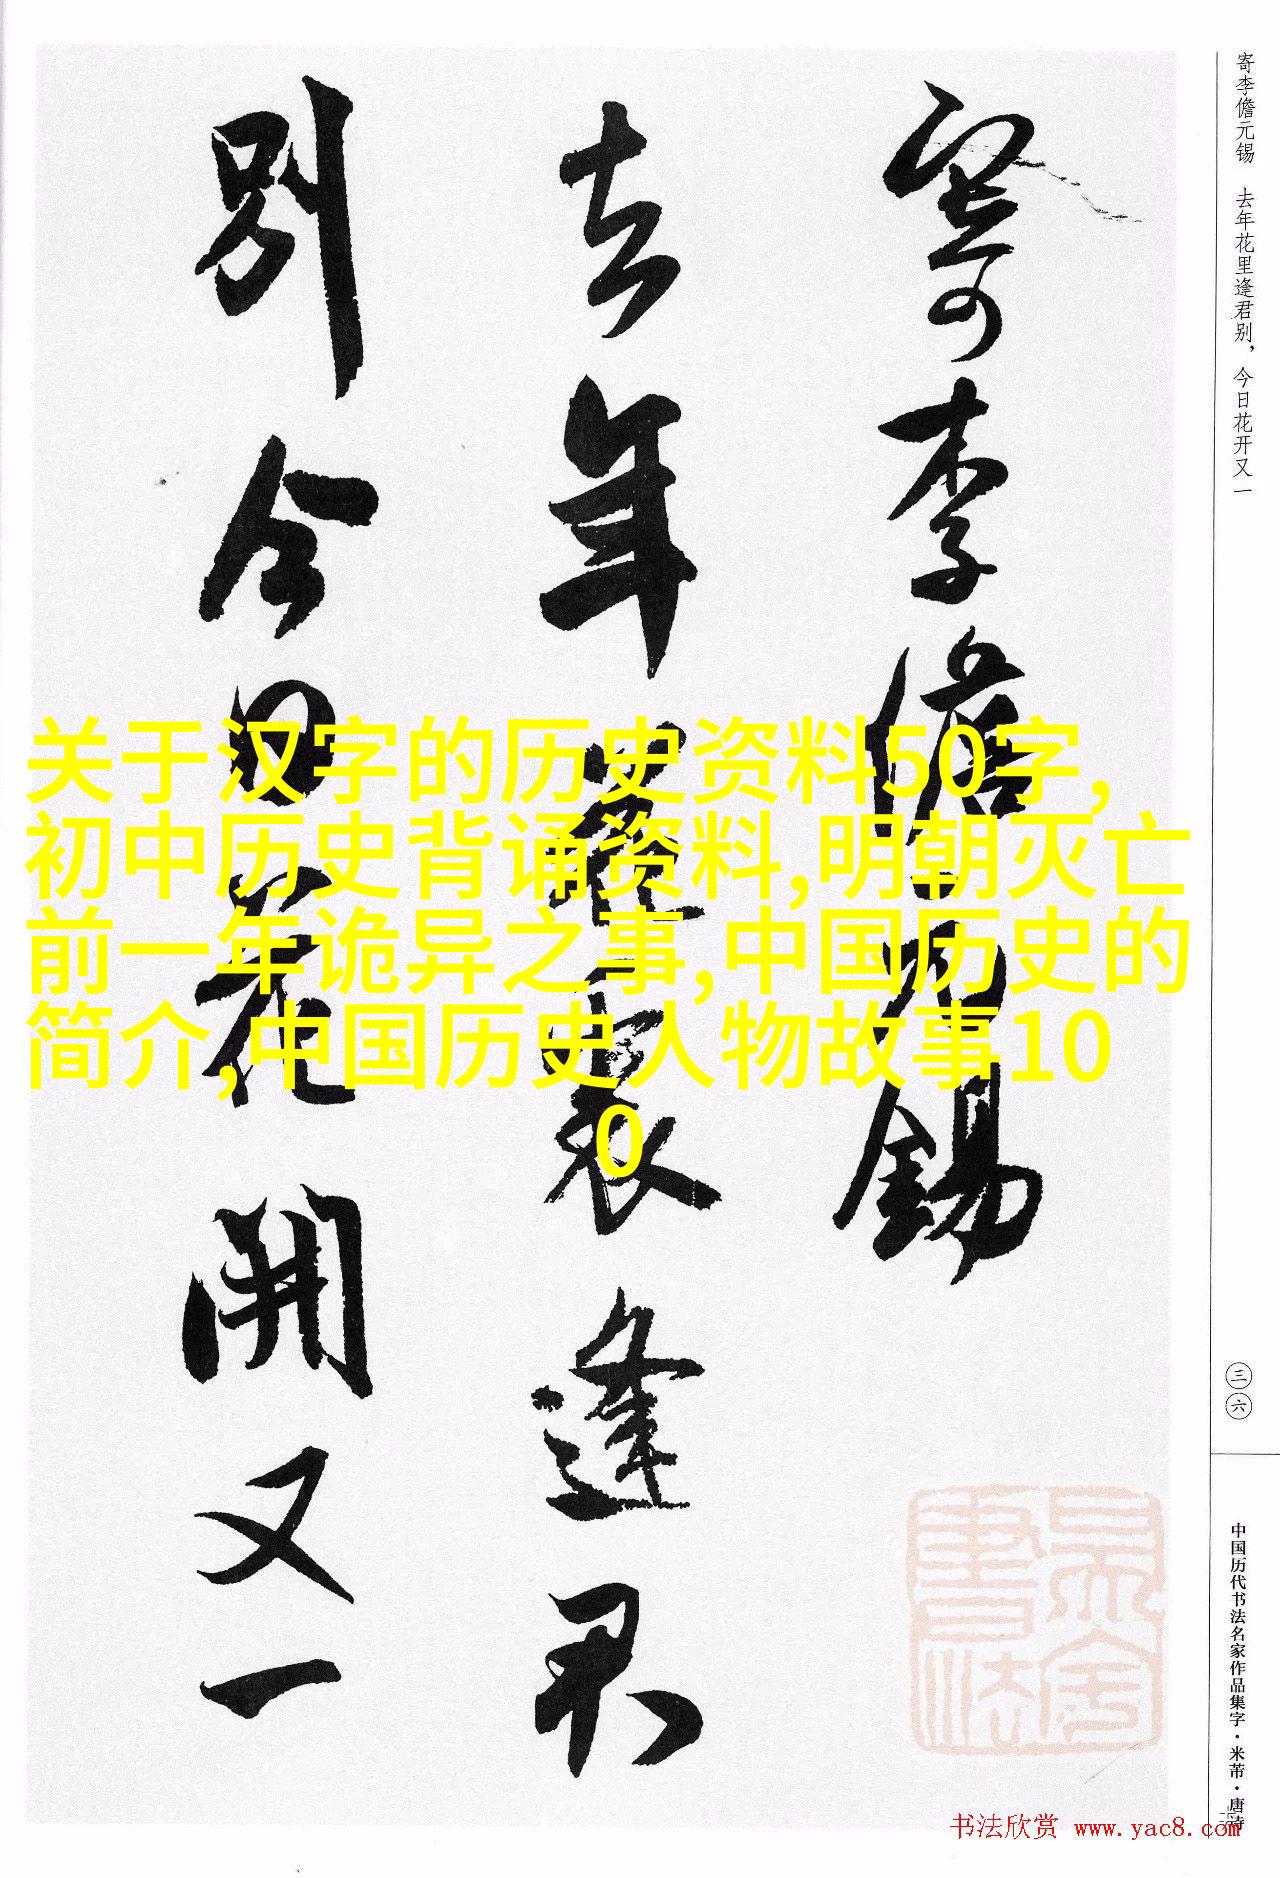 寄李儋元锡　去年花里逢君别，今日花开又一
寄李儋元錫
去年花裏逢君
別今日花開又一
关于汉字的历史资料50字,
初中历史背诵资料,明朝灭亡
前一年诡异之事,中国历史的
简介,中国历史人物故事10
0
三六
中国历代书法名家作品集字·米芾·唐诗
书法欣赏 www.yac8.com